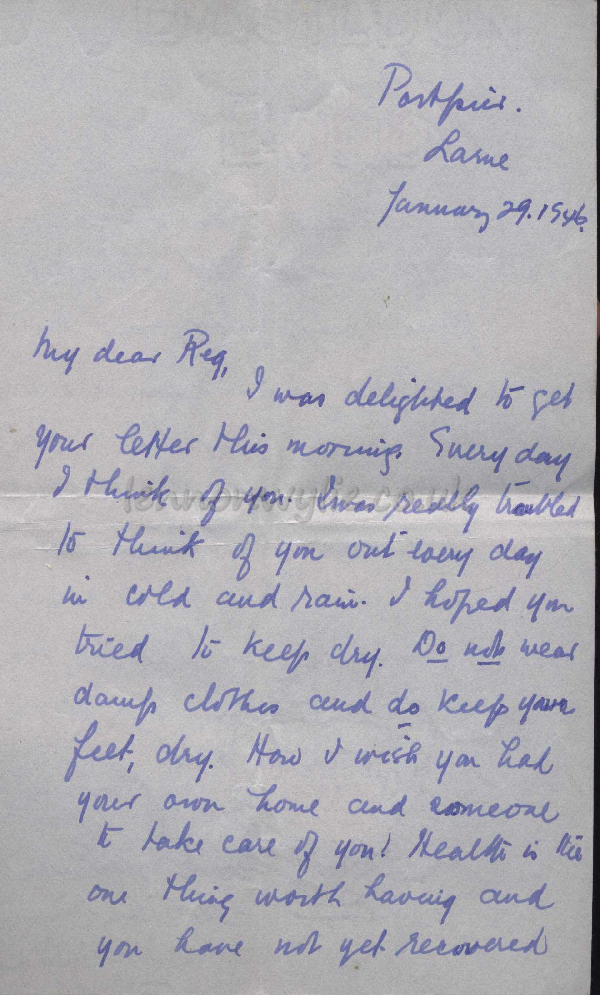 Portpier.
Larne
January 29. 1946.
My dear Reg,
I was delighted to get
your letter this morning. Every day
I think of you. I was really troubled
to think of you out every day
in cold and rain. I hoped you
tried to keep dry. Do not wear
damp clothes and do keep your
feet, dry. How I wish you had
your own home and someone
to take care of you! Health is the
one thing worth having and
you have not yet recovered
lennonwylie.co.uk